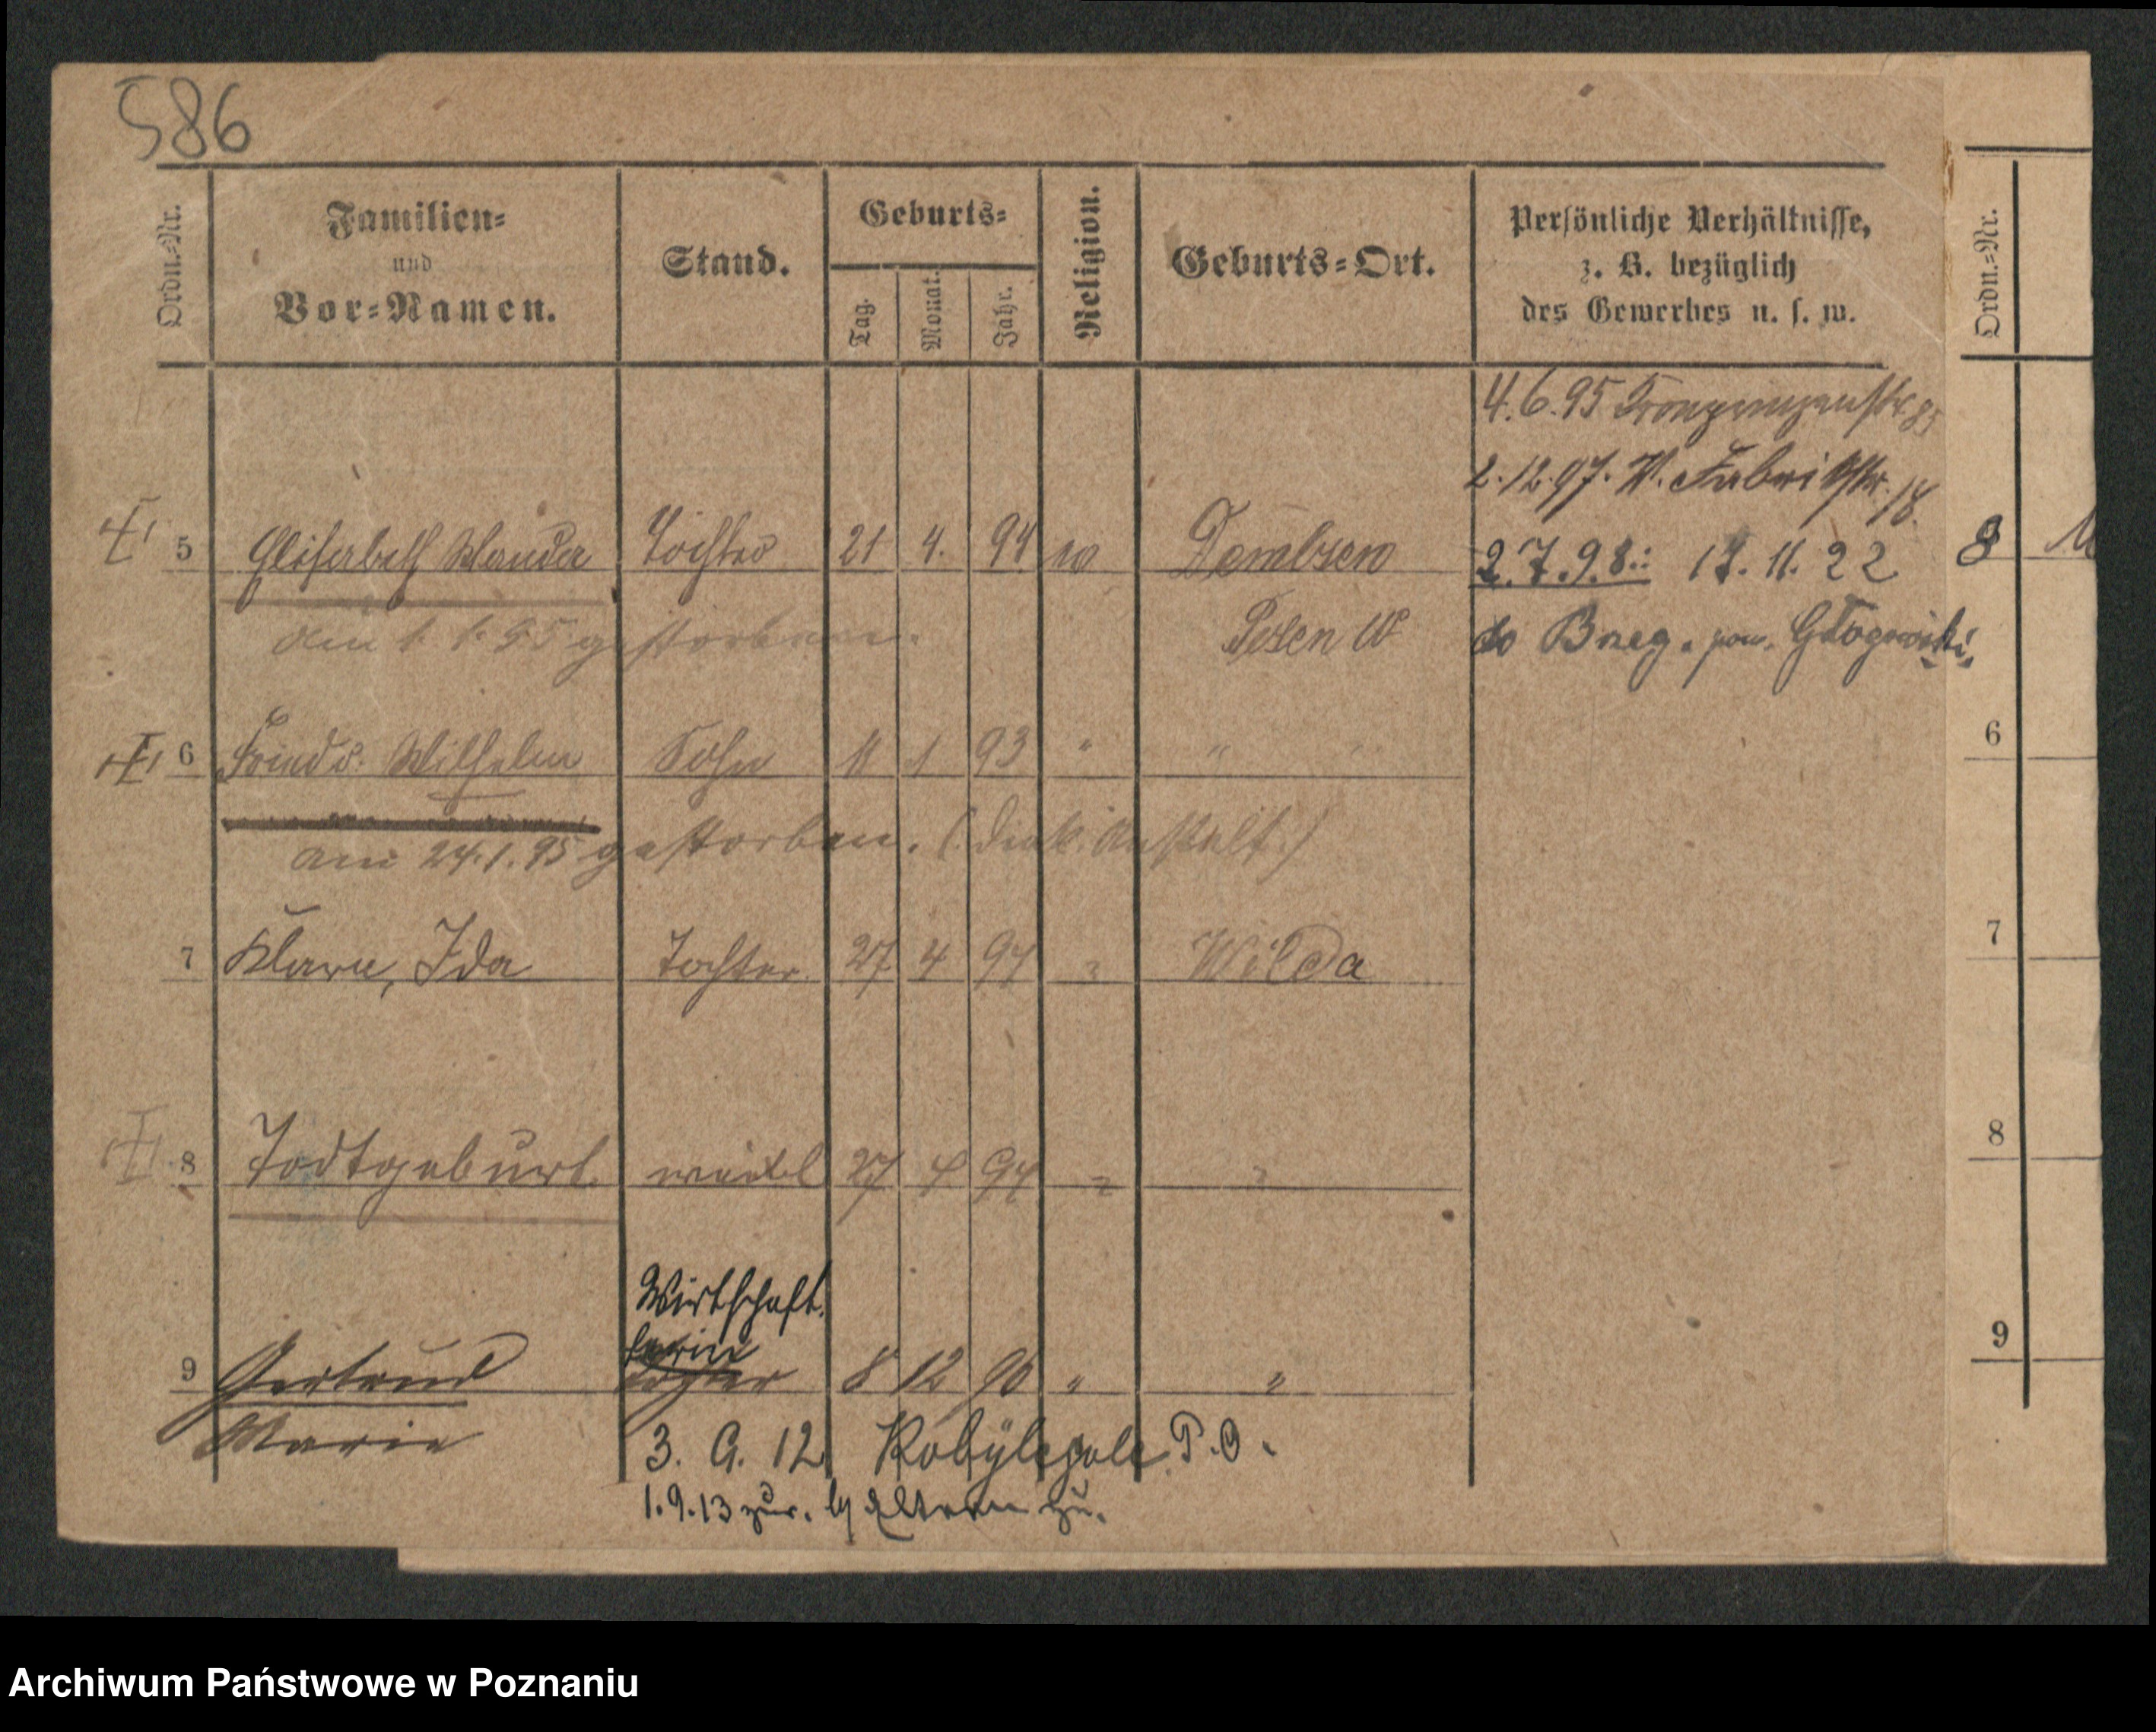 586
Ordn.-Nr.
Familien-
und
Vor-Namen.
Stand.
Geburts-
Tag.
Monat.
Jahr.
Religion.
Geburts-Ort.
Persönliche Verhältnisse,
z. B. bezüglich
des Gewerbes u. s. w.
Ordn.-Nr.
4. 6. 95 Kronprinzenstr.
2. 12. 97. W. Fabrikstr. 18.
5 Elisabeth Wanda Tochter 21 4. 94 Dembsen 2. 7. 98. 11. 22
am 1. 1. 95 gestorben. Posen W do Brieg. pow. Głogowski
6 Friedr. Wilhelm Sohn 11 1 93 " " "
am 24. 1. 95 gestorben. (Diak. Anstalt.)
7 Klara, Ida Tochter 27 4 94 " Wilda
8 Todtgeburt. weibl 27 4 94 " "
Wirthschaft.
9 Gertrud Tochter 8 12 96 " "
Marie
3. 9. 12 Kobylepole P. O.
1. 9. 13 zur. Eltern zu.
8
6
7
8
9
Archiwum Państwowe w Poznaniu